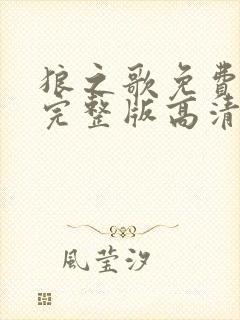 狼之歌免費
完整版高清
風莹汐